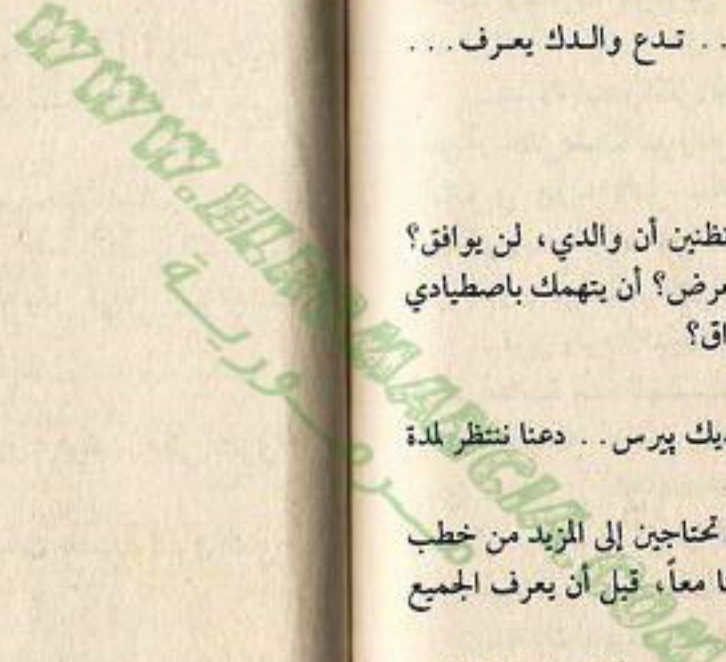 .. تدع والدك يعرف...
تظنين أن والدي، لن يوافق؟
أن يتهمك باصطيادي
پيرس.. دعنا ننتظر لمدة
تحتاجين إلى المزيد من خطب
معاً، قبل أن يعرف الجميع
WWW.ELROMANCIA.COM
مرمورية